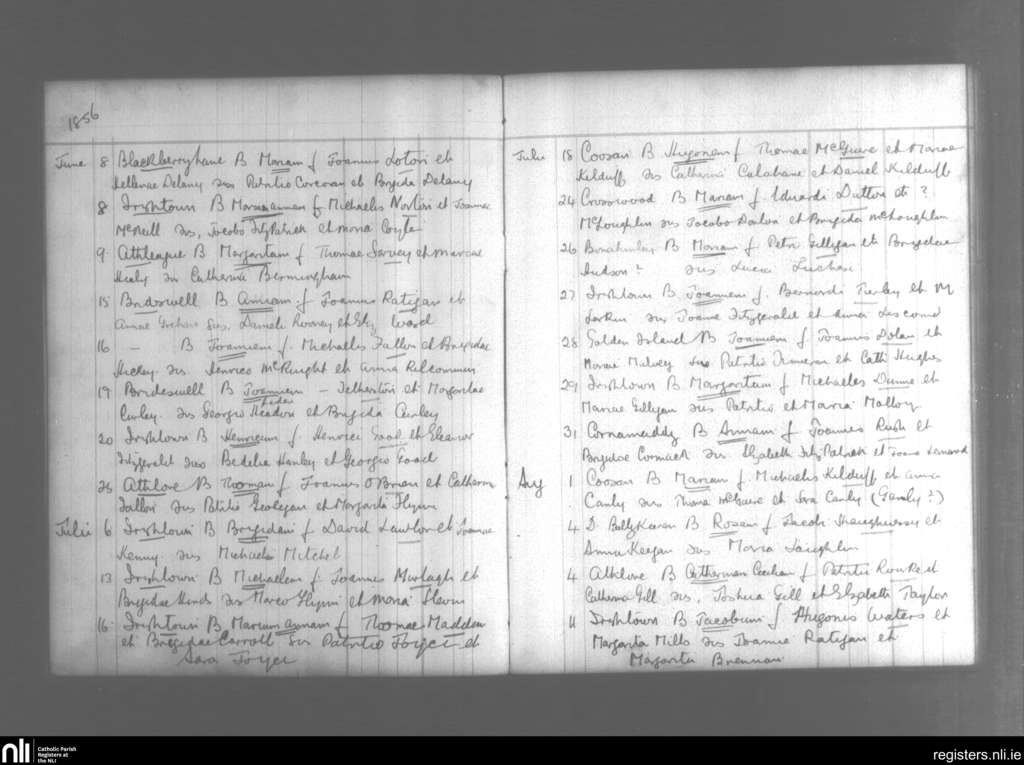 1856
June 8 Blackberrylane B Mariam f Joannis Loton et
Hellenae Delany sus Patritio Corcoran et Brigida Delany
8 Irishtown B Mariam f Michaelis Norton et Joannae
McNeill sus, Jacobo Fitzpatrick et Maria Coyle
9 Athleague B Margaritam f Thomae et Mariae
Healy sus Catherina Bermingham
15 Bridewell B Annam f Joannis Ratigan et
Annae sus Daniele Rooney et Eliz Ward
16 - B Joannem f Michaelis Fallon et Brigidae
Hickey sus Henrico McKnight et Anna Kilcommin
19 Brideswell B Joannem - et Margaritae
Curley sus Georgio Headon et Brigida Curley
20 Irishtown B Henricum f. Henrici Good et Eleanor
Fitzgerald sus Bedelia Hanley et Georgio Good
25 Athlone B Thomam f Joannis O'Brien et Catherina
Fallon sus Patritio Geoghegan et Margarita Flynn
Julii 6 Irishtown B Brigidam f David Lawlor et Joannae
Kenny sus Michaele Mitchel
13 Irishtown B Michaelem f Joannis Murtagh et
Brigidae Hinds sus Marco Flynn et Maria
16 Irishtown B Mariam Annam f Thomae Madden
et Brigidae Carroll sus Patritio Joyce et
Sara Joyce
Julii 18 Coosan B Hugonem f Thomae McGuire et Mariae
Kilduff sus Catherina Culahane et Daniel Kilduff
24 Crosswood B Mariam f. Eduardi Dutton et ?
McLoughlin sus Jacobo Dalton et Brigida McLoughlin
26 B Mariam f Petri Gilligan et Brigidae
Hudson ? sus Lucia
27 Irishtown B Joannem f. Bernardi Turley et M
Larkin sus Joanne Fitzgerald et Anna
28 Golden Island B Joannem f Joannis Dolan et
Mariae Mulvey sus Patritio et Cath Hughes
29 Irishtown B Margaritam f Michaeles Dunne et
Mariae Gilligan sus Patritio et Maria Malloy
31 Cornamaddy B Annam f Joannis Rush et
Brigidae Cormack sus Elizabeth FitzPatrick et Lennard
Aug 1 Coosan B Mariam f. Michaelis Kilduff et Anna
Canly sus Thoma McGuire et Sara Canly (Gandy ?)
4 D. Ballykeeran B Rosam f Jacobi Shaughnessy et
Anna Keegan sus Maria Laughlin
4 Athlone B Catherinam Ceciliam f Patritii Rourke et
Catherina Gill sus, Joshua Gill et Elizabeth Taylor
11 Irishtown B Jacobum f Hugonis Waters et
Margarita Mills sus Joanne Ratigan et
Margarita Brennan
nli
Catholic Parish
Registers at
the NLI
registers.nli.ie